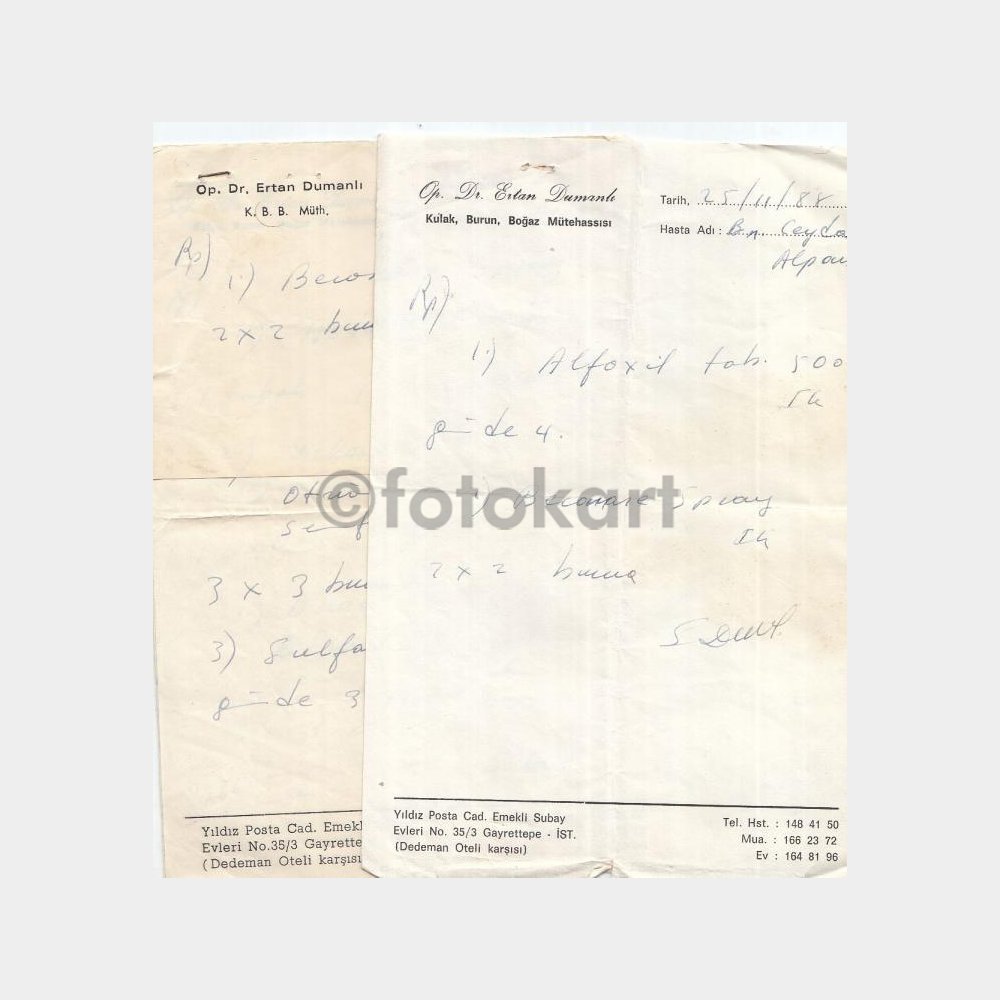 Op. Dr. Ertan Dumanlı
K. B. B. Müth.
Rp)
1)
2 x 2
3 x 3
3) Sulfa
günde 3
Yıldız Posta Cad. Emekl
Evleri No.35/3 Gayrette
(Dedeman Oteli karşısı
Op. Dr. Ertan Dumanlı
Kulak, Burun, Boğaz Mütehassısı
Tarih, 25/11/88
Hasta Adı : Bn. Ceyda
Alpa
Rp)
1) Alfoxil tab. 500
günde 4.
©fotokart
) Beconase Spray
2 x 2 buruna
Yıldız Posta Cad. Emekli Subay
Evleri No. 35/3 Gayrettepe - İST.
(Dedeman Oteli karşısı)
Tel. Hst. : 148 41 50
Mua. : 166 23 72
Ev : 164 81 96